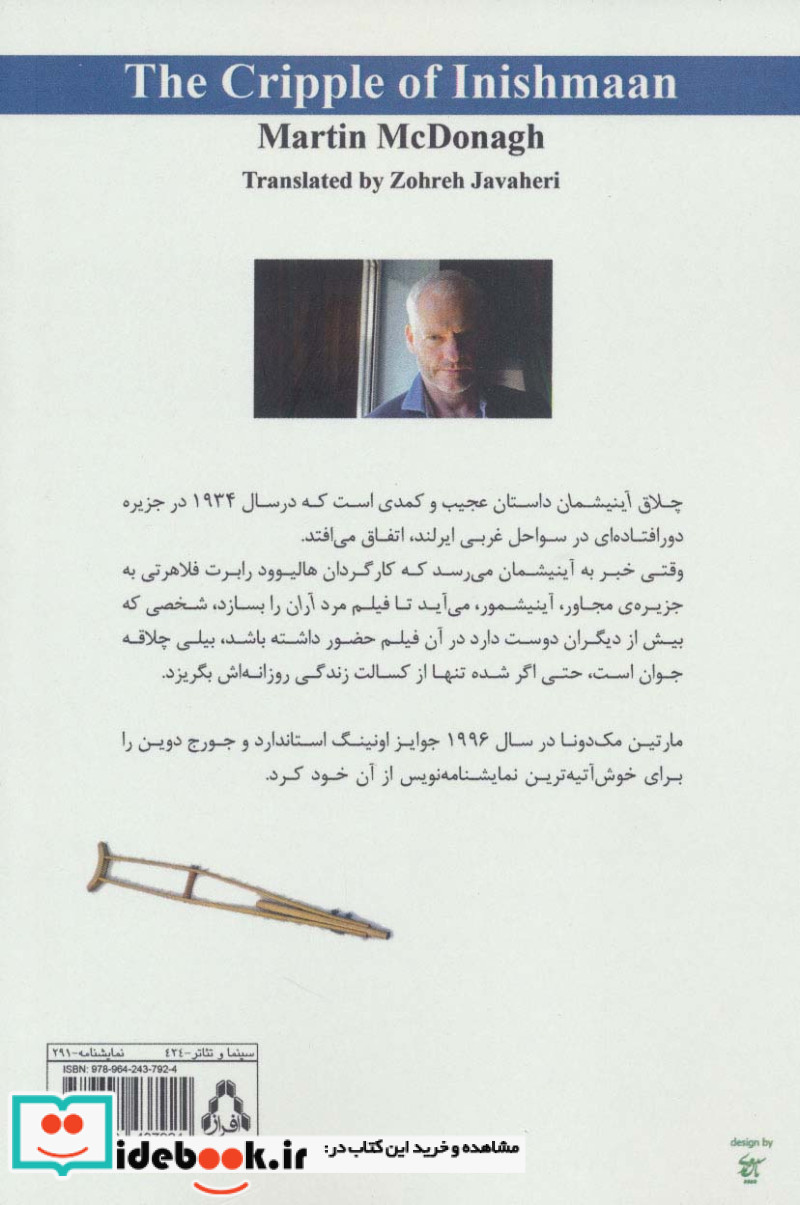 The Cripple of Inishmaan
Martin McDonagh
Translated by Zohreh Javaheri
چلاق آینیشمان داستان عجیب و کمدی است که درسال ۱۹۳۴ در جزیره
دورافتاده‌ای در سواحل غربی ایرلند، اتفاق می‌افتد.
وقتی خبر به آینیشمان می‌رسد که کارگردان هالیوود رابرت فلاهرتی به
جزیره‌ی مجاور، آینیشمور، می‌آید تا فیلم مرد آران را بسازد، شخصی که
بیش از دیگران دوست دارد در آن فیلم حضور داشته باشد، بیلی چلاقه
جوان است، حتی اگر شده تنها از کسالت زندگی روزانه‌اش بگریزد.
مارتین مک‌دونا در سال ۱۹۹۶ جوایز اونینگ استاندارد و جورج دوین را
برای خوش‌آتیه‌ترین نمایشنامه‌نویس از آن خود کرد.
سینما و تئاتر-۴۲۴ نمایشنامه-۲۹۱
ISBN: 978-964-243-792-4
افراز
مشاهده و خرید این کتاب در:
idebook.ir
design by